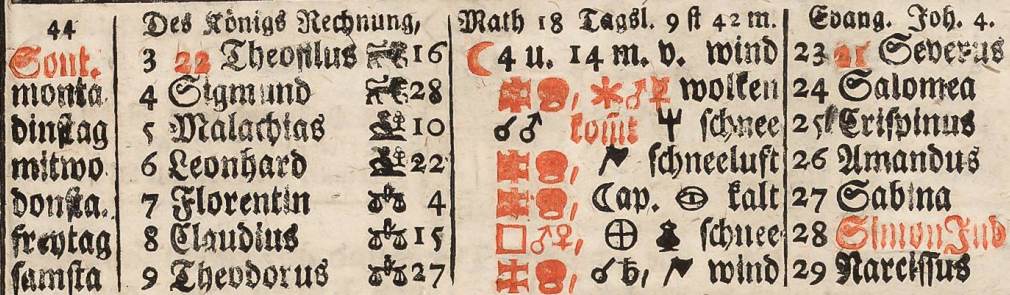 44 Des Königs Rechnung, Math 18 Tagsl. 9 st 42 m. Evang. Joh. 4.
Sont. 3 22 Theofilus 16 ☾ 4 u. 14 m. v. wind 23 21 Severus
monta 4 Sigmund 28 ✶♂☿ wolken 24 Salomea
dinstag 5 Malachias 10 ☌♂ komt Ψ schnee 25 Crispinus
mitwo 6 Leonhard 22 schneeluft 26 Amandus
donsta. 7 Florentin 4 ☾ap. kalt 27 Sabina
freytag 8 Claudius 15 □♂♀, ⊕ schnee 28 Simon Jud
samsta 9 Theodorus 27 ☌♄, wind 29 Narcissus